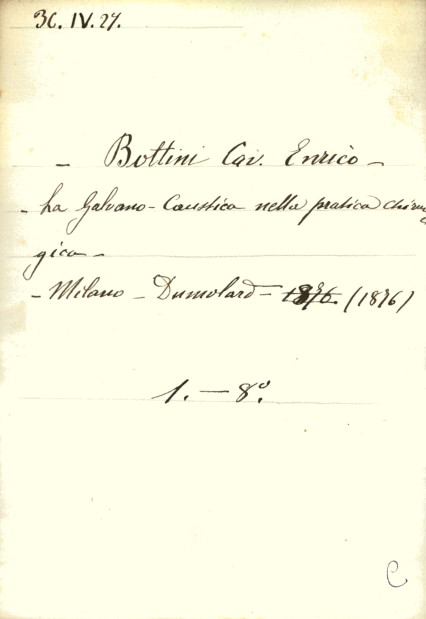 3C. IV. 27.
- Bottini Cav. Enrico -
- La Galvano-Caustica nella pratica chirur
gica -
- Milano - Dumolard - 1876 (1876)
1. - 8º.
C